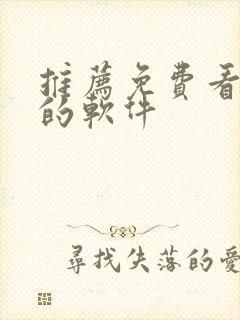 推薦免費看
的軟件
尋找失落的愛